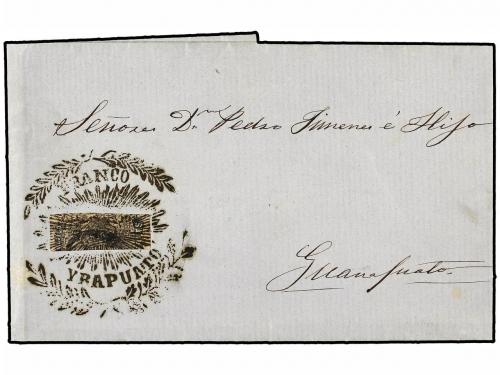 Señores Dn. Pedro Jimenes é Hijo
FRANCO
YRAPUATO
Guanajuato.